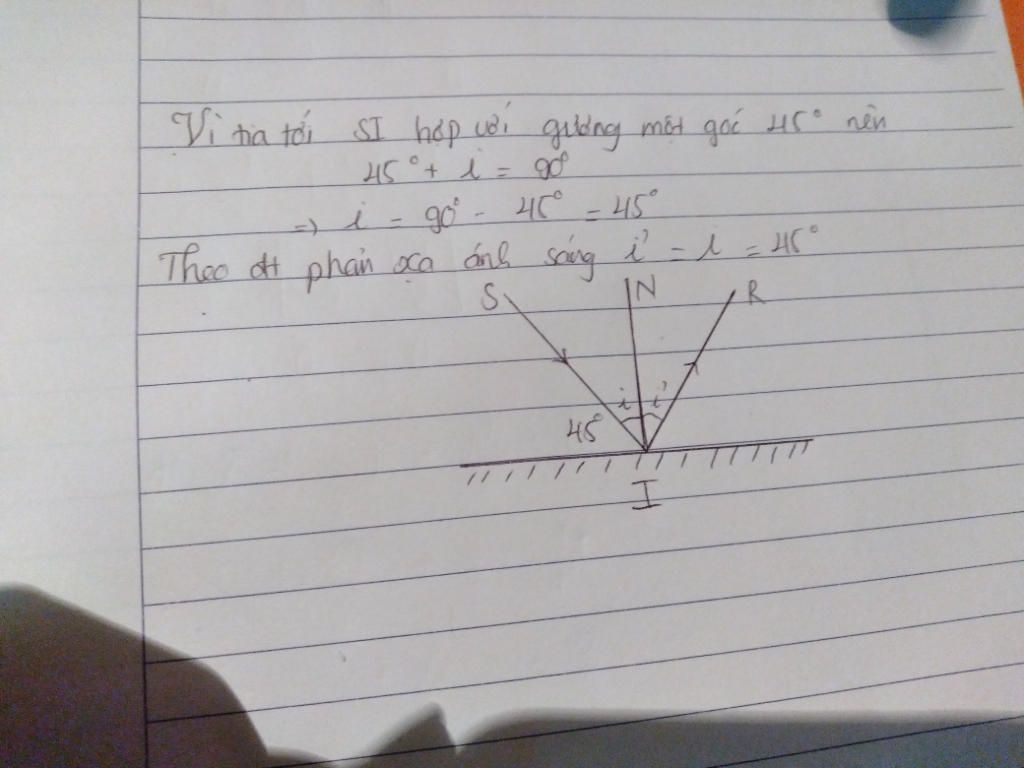 Vì tia tới SI hợp với gương một góc 45° nên
45° + i = 90°
=> i = 90° - 45° = 45°
Theo đl phản xạ ánh sáng i' = i = 45°
S N R
i i'
45°
I